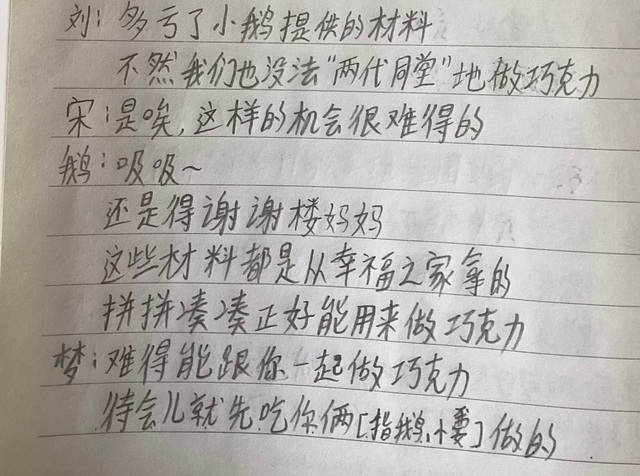 刘:多亏了小鹅提供的材料
不然我们也没法“两代同堂”地做巧克力
宋:是唉,这样的机会很难得的
鹅:吸吸~
还是得谢谢楼妈妈
这些材料都是从幸福之家拿的
拼拼凑凑正好能用来做巧克力
梦:难得能跟你一起做巧克力
待会儿就先吃你俩[指鹅、小]做的